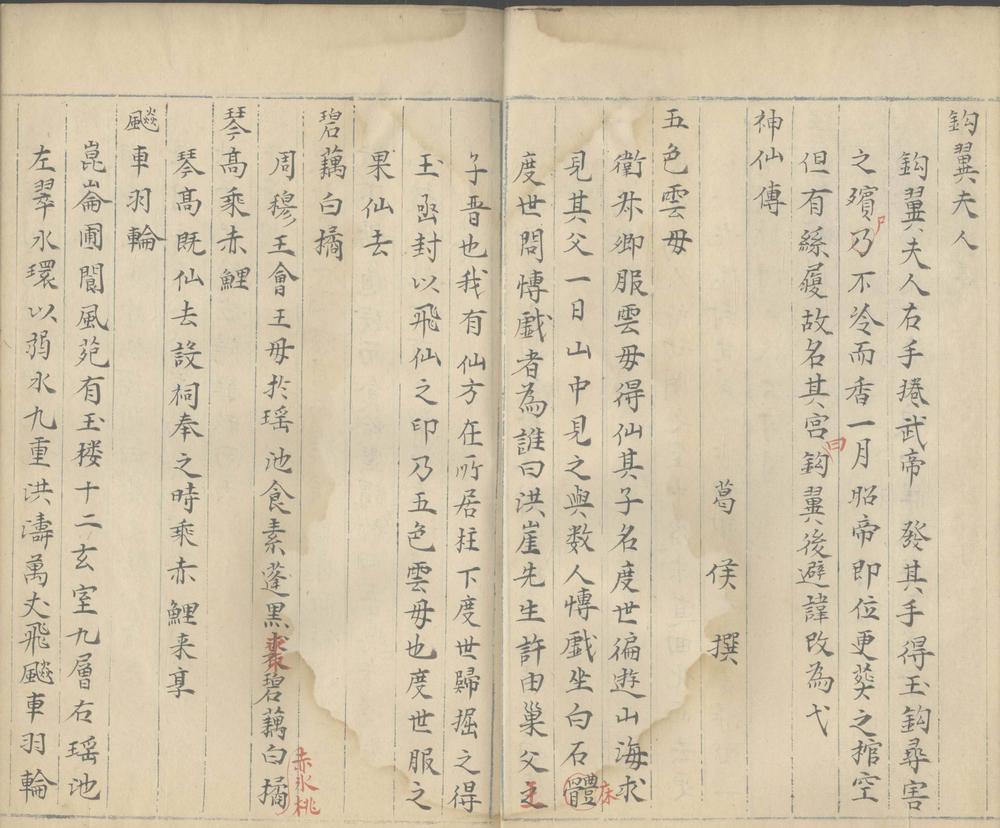 鈎翼夫人
鈎翼夫人右手捲武帝 發其手得玉鈎尋害
之殯尸乃不冷而香一月昭帝即位更葬之棺空
但有絲履故名其宫曰鈎翼後避諱改為弋
神仙傳
葛 侯 撰
五色雲母
衛叔卿服雲母得仙其子名度世徧遊山海求
見其父一日山中見之與數人愽戱坐白石體床
度世問愽戱者為誰曰洪崖先生許由巢父之王
子晋也我有仙方在所居柱下度世歸掘之得
玉函封以飛仙之印乃五色雲母也度世服之
果仙去
碧藕白橘
周穆王會王母扵瑶池食素蓮黑棗碧藕白橘
赤水桃
琴高乘赤鯉
琴高既仙去設祠奉之時乘赤鯉来享
飈車羽輪
崑崙圃閬風苑有玉楼十二玄室九層右瑶池
左翠水環以弱水九重洪濤萬丈飛飈車羽輪